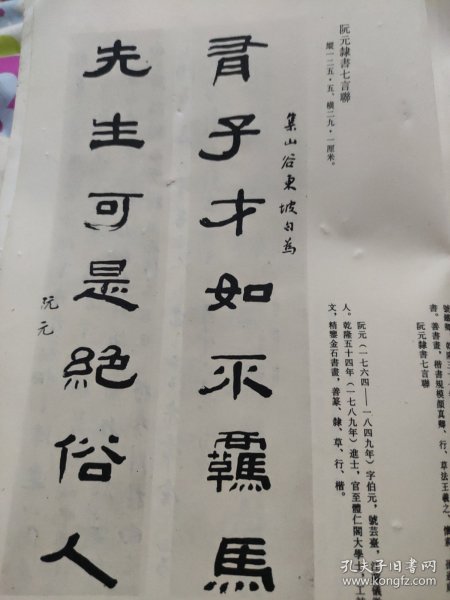 阮元隸書七言聯
縱一二五·五、橫二九·一厘米。
書。善書畫,楷書規模顏真卿、行、草法王羲之、懷素
阮元隸書七言聯
阮元(一七六四——一八四九年)字伯元,號芸臺,儀
人。乾隆五十四年(一七八九年)進士,官至體仁閣大學士工
文,精鑒金石書畫,善篆、隸、草、行、楷。
集山谷東坡句為
君子才如不羈馬
先生可是絕俗人
阮元
孔夫子旧书网